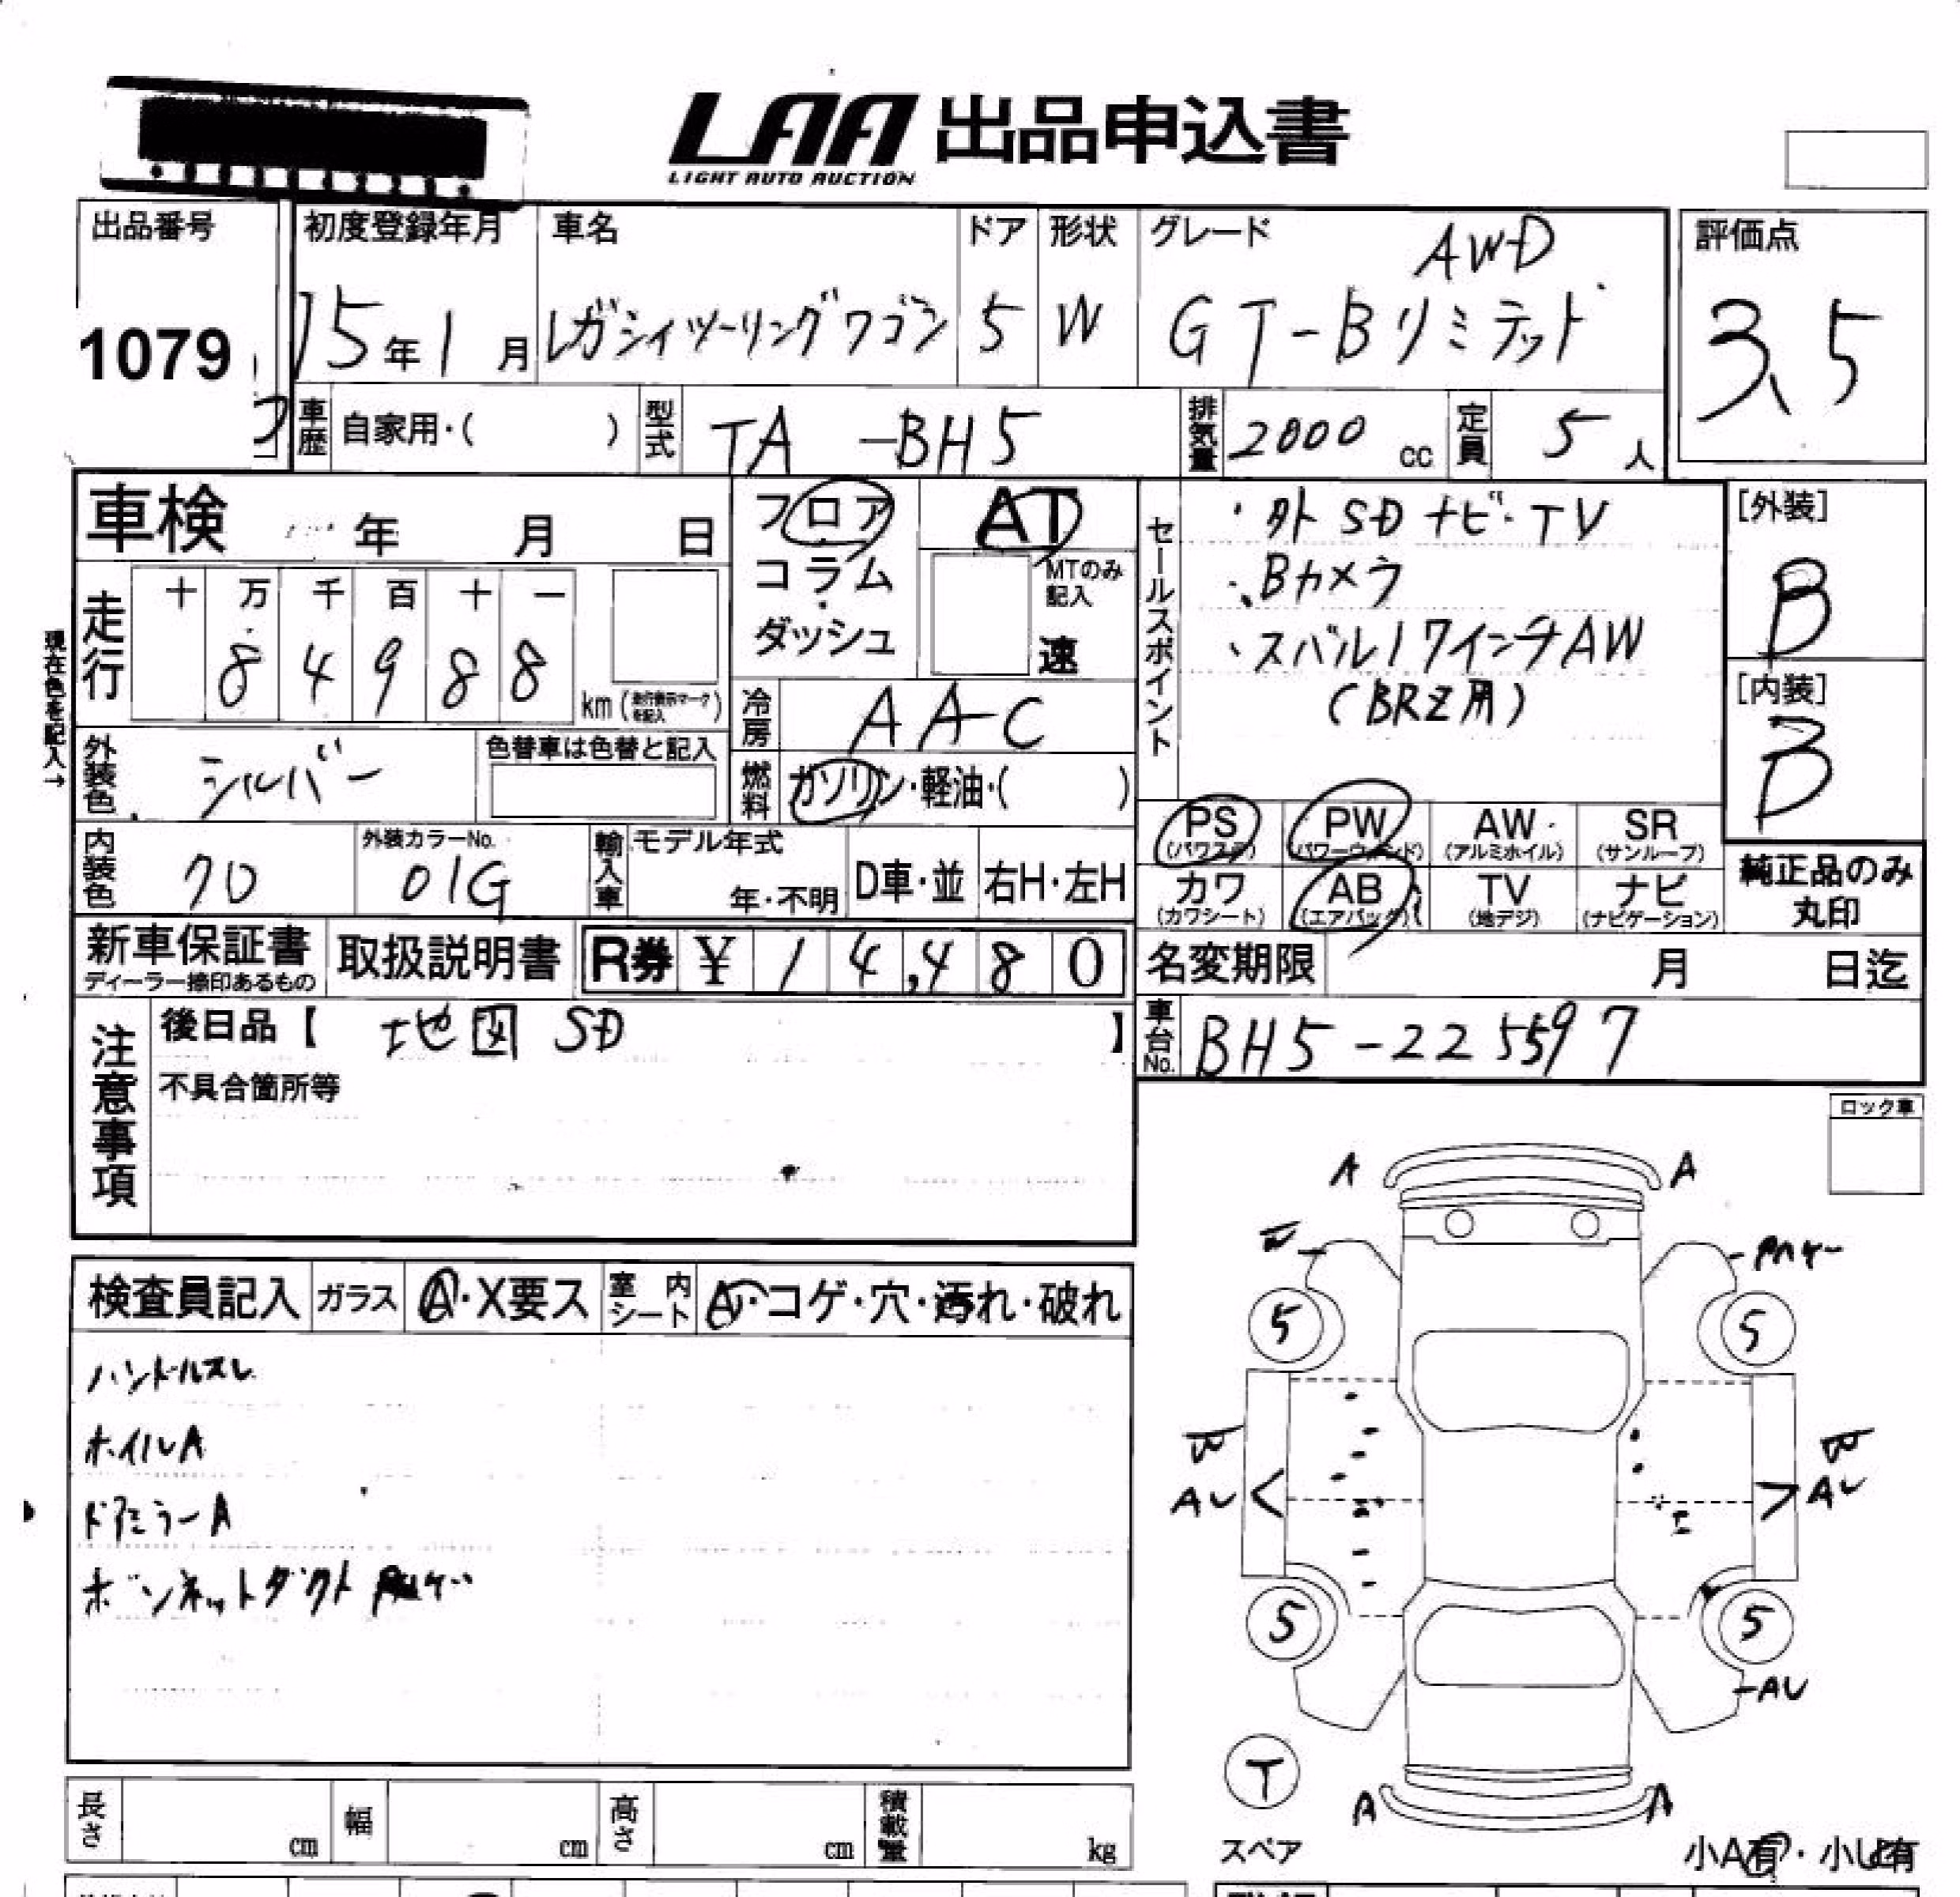 LAA 出品申込書
LIGHT AUTO AUCTION
出品番号 初度登録年月 車名 ドア 形状 グレード 評価点
AWD
1079 15年1月 レガシィツーリングワゴン 5 W GT-Bリミテッド 3.5
車歴 自家用・( ) 型式 TA-BH5 排気量 2000 cc 定員 5人
車検 年 月 日
フロア AT
コラム MTのみ記入
ダッシュ 速
セールスポイント
・外SDナビ・TV
・Bカメラ
・スバル17インチAW
(BRZ用)
[外装]
B
[内装]
B
現在色を記入→
走行 十 万 千 百 十 一
8 4 9 8 8 km (走行表示マークを記入)
冷房 AAC
外装色 シルバー 色替車は色替と記入
燃料 ガソリン・軽油・( )
PS (パワステ) PW (パワーウィンド) AW (アルミホイル) SR (サンルーフ)
内装色 クロ 外装カラーNo. 01G 輸入車 モデル年式 年・不明 D車・並 右H・左H
カワ (カワシート) AB (エアバッグ) TV (地デジ) ナビ (ナビゲーション)
純正品のみ
丸印
新車保証書 取扱説明書 R券 ¥ 14,480
ディーラー捺印あるもの
名変期限 月 日迄
注意事項
後日品【 地図SD 】
車台No. BH5-225597
不具合箇所等
ロック車
A A
5 5
AU AU
5 5
AU
T
スペア
A A
小A有・小U有
検査員記入 ガラス A・X要ス 室内シート A・コゲ・穴・汚れ・破れ
ハンドルスレ
ホイルA
ドアミラーA
ボンネットダクト
長さ cm 幅 cm 高さ cm 積載量 kg